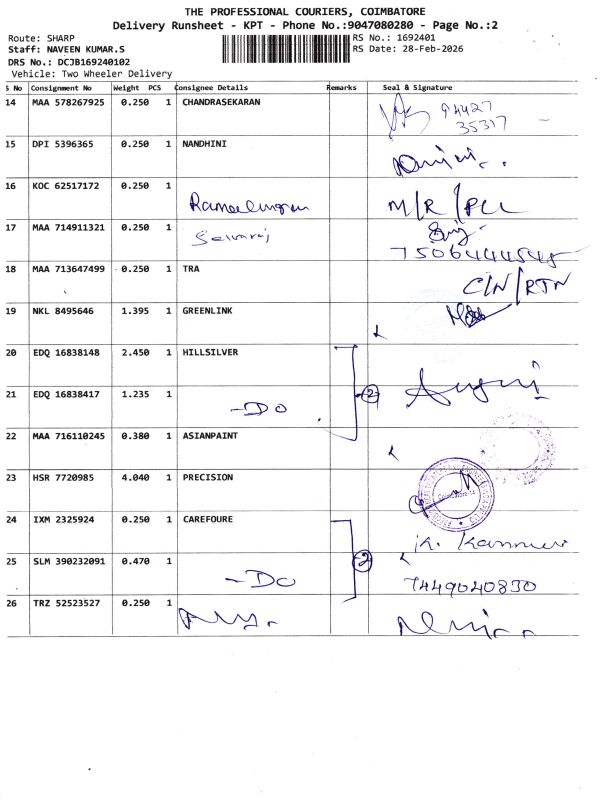 THE PROFESSIONAL COURIERS, COIMBATORE
Delivery Runsheet - KPT - Phone No.:9047080280 - Page No.:2
Route: SHARP
RS No.: 1692401
Staff: NAVEEN KUMAR.S
RS Date: 28-Feb-2026
DRS No.: DCJB169240102
Vehicle: Two Wheeler Delivery
S No Consignment No Weight PCS Consignee Details Remarks Seal & Signature
14 MAA 578267925 0.250 1 CHANDRASEKARAN 94427
35317
15 DPI 5396365 0.250 1 NANDHINI
16 KOC 62517172 0.250 1
Ramalingam M/R/PCL
17 MAA 714911321 0.250 1 Selvaraj
18 MAA 713647499 0.250 1 TRA C/N/RTN
19 NKL 8495646 1.395 1 GREENLINK
20 EDQ 16838148 2.450 1 HILLSILVER
2
21 EDQ 16838417 1.235 1 -DO
22 MAA 716110245 0.380 1 ASIANPAINT
23 HSR 7720985 4.040 1 PRECISION
24 IXM 2325924 0.250 1 CAREFOURE
2
25 SLM 390232091 0.470 1 -DO 7449040830
26 TRZ 52523527 0.250 1